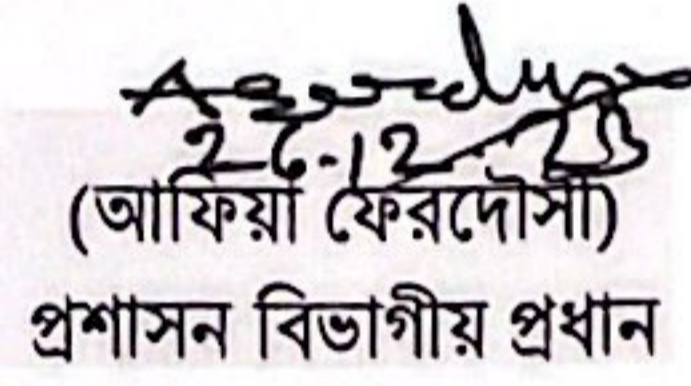 26-12-23
(আফিয়া ফেরদৌসী)
প্রশাসন বিভাগীয় প্রধান